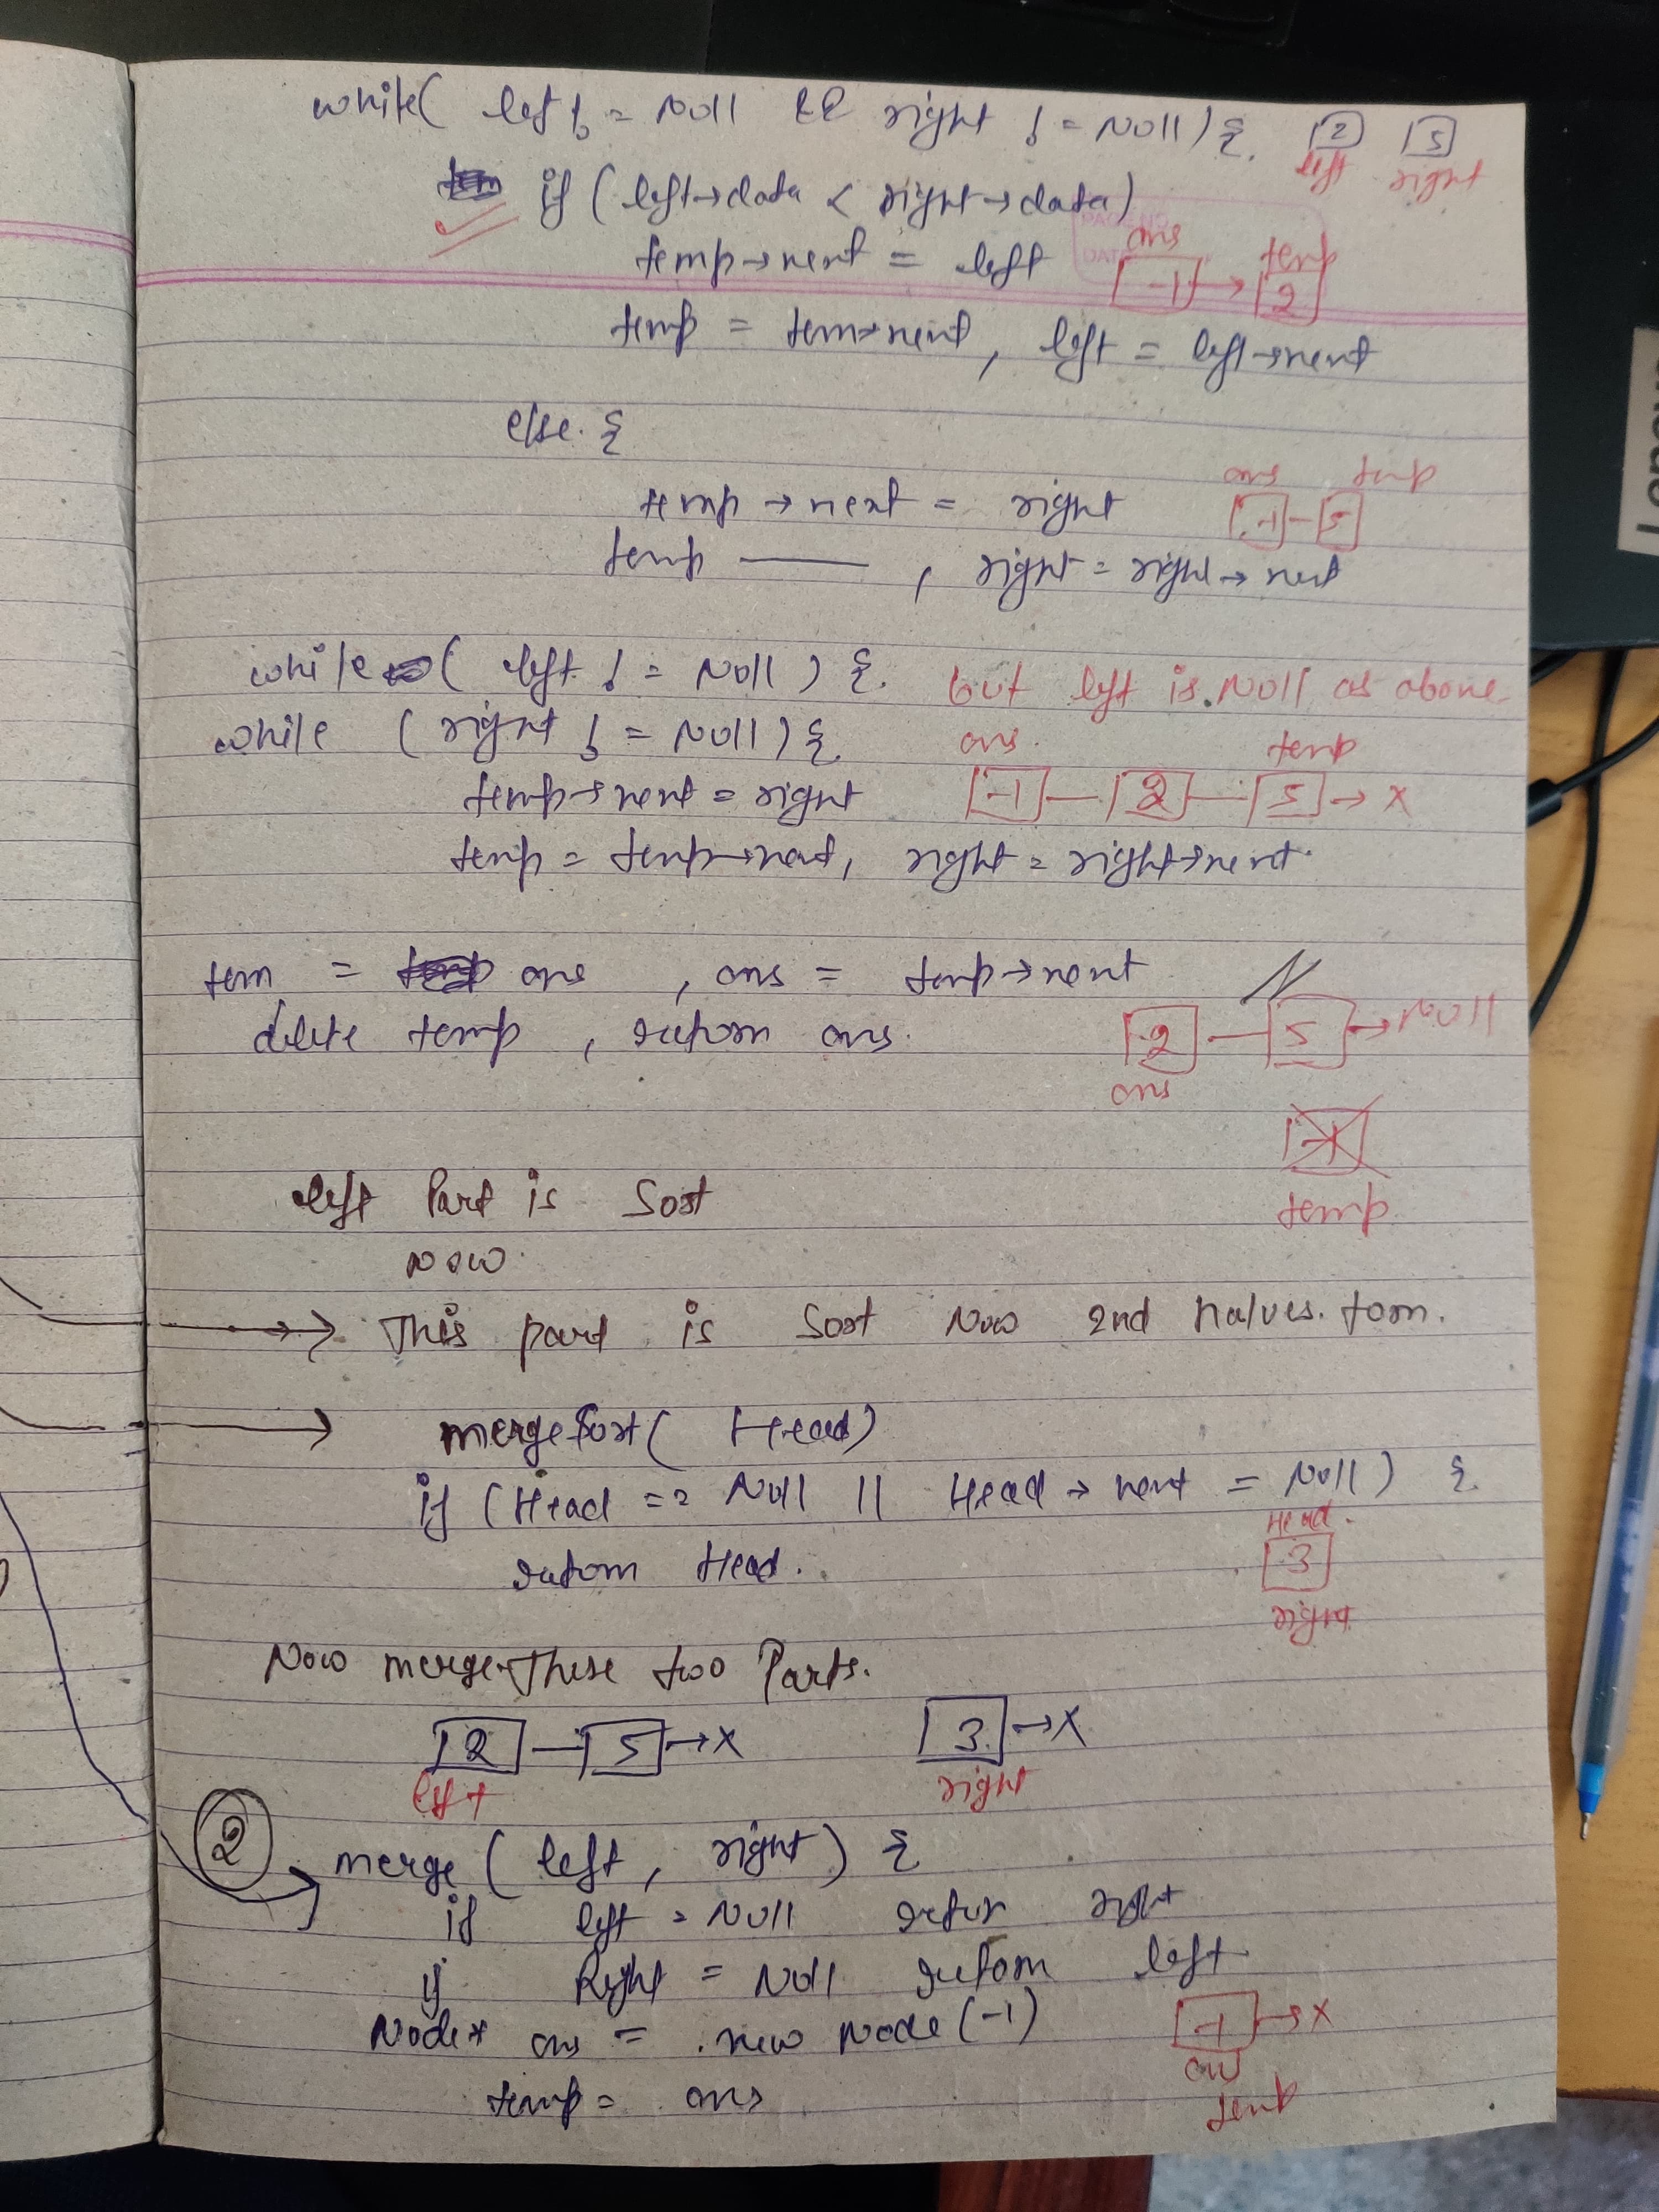 while( left != NULL && right != NULL) { 2 5
left right
if (left→data < right→data)
PAGE NO
DATE
temp→next = left ans temp
-1 → 2
temp = tem→next, left = left→next
else. {
temp → next = right ans temp
-1 - 5
temp —— , right = right → next
while ( left != NULL ) {. but left is NULL as above
while ( right != NULL) {. ans. temp
temp→next = right -1 — 2 — 5 → x
temp = temp→next, right = right→next.
tem = ans , ans = temp→next
delete temp , return ans. 2 — 5 → NULL
ans
-1
temp
left Part is Sort
Now.
→ This part is Sort Now 2nd halves. torn.
→ mergeSort( Head)
if (Head == NULL || Head → next = NULL) {.
Head.
return Head. 3
right
Now merge These two Parts.
2 — 5 → X 3 → X
left right
2 → merge ( left, right ) {
if left = NULL retur right
if Right = NULL return left
Node* ans = new Node(-1) -1 → x
ans
temp = ans temp